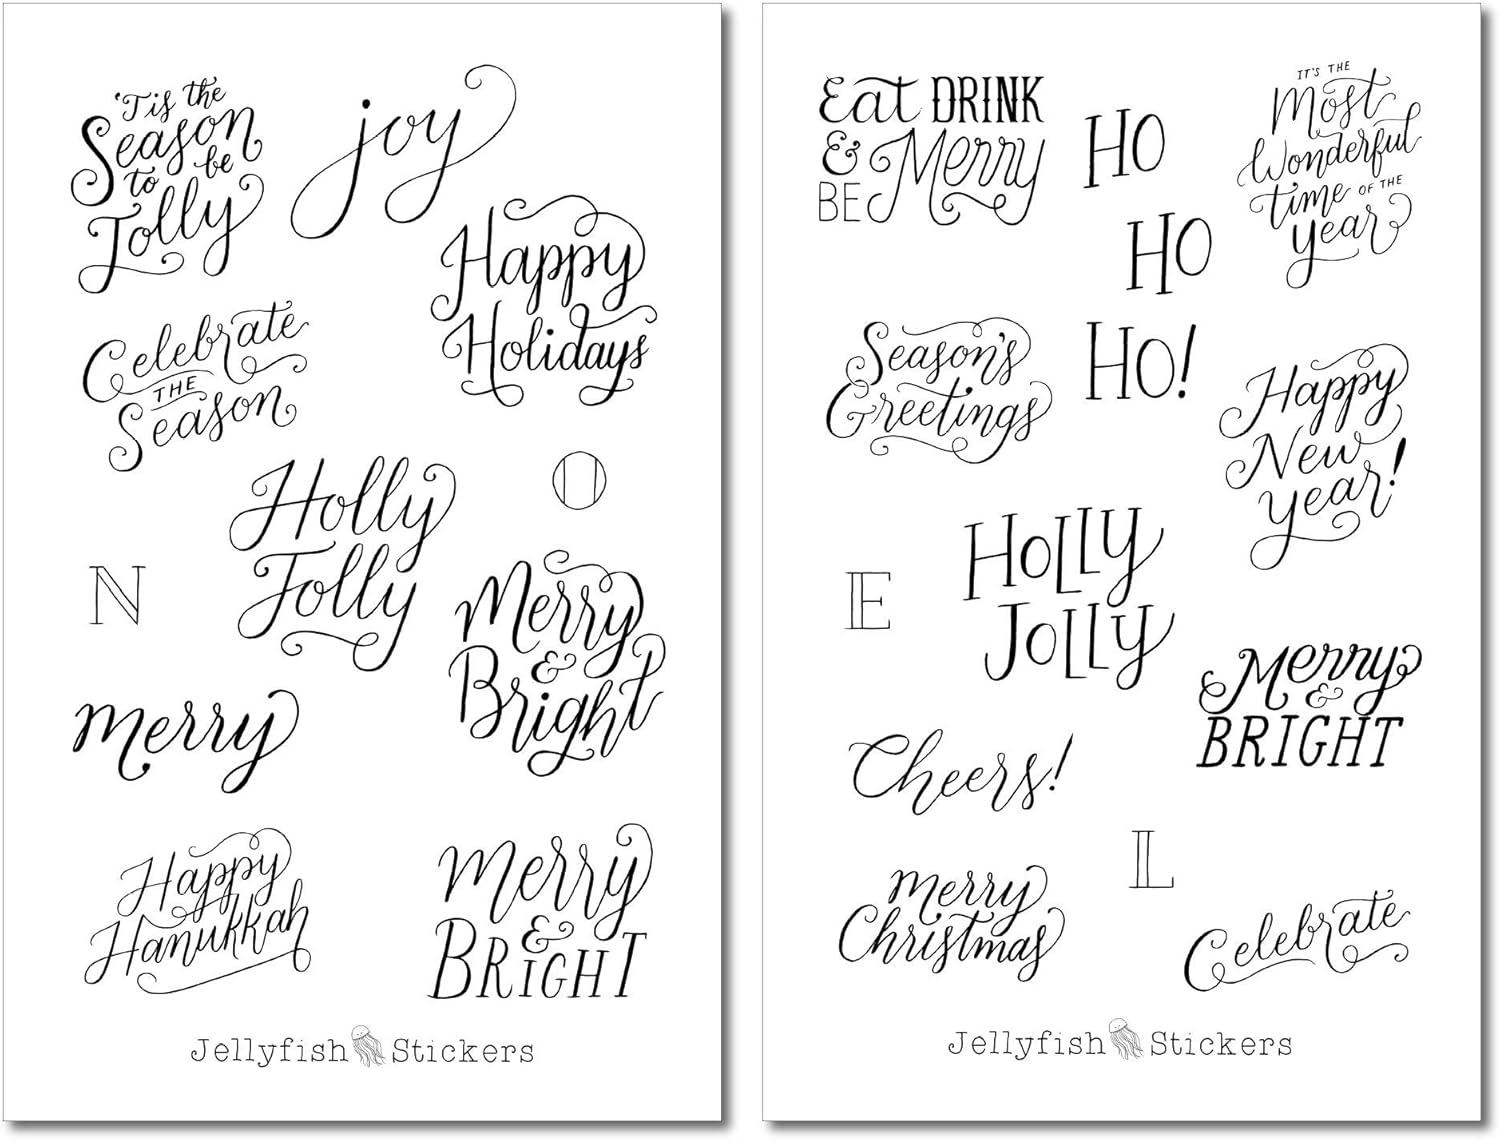 'Tis the
Season
to be
Jolly
joy
Happy
Holidays
Celebrate
THE
Season
Holly
Jolly
O
N
Merry
&
Bright
merry
Happy
Hanukkah
Merry
&
BRIGHT
Jellyfish Stickers
Eat DRINK
& Merry
BE
HO
HO
HO!
IT'S THE
Most
Wonderful
time OF THE
year
Season's
Greetings
Happy
New
year!
HOLLY
JOLLY
E
Merry
&
BRIGHT
Cheers!
L
Merry
Christmas
Celebrate
Jellyfish Stickers